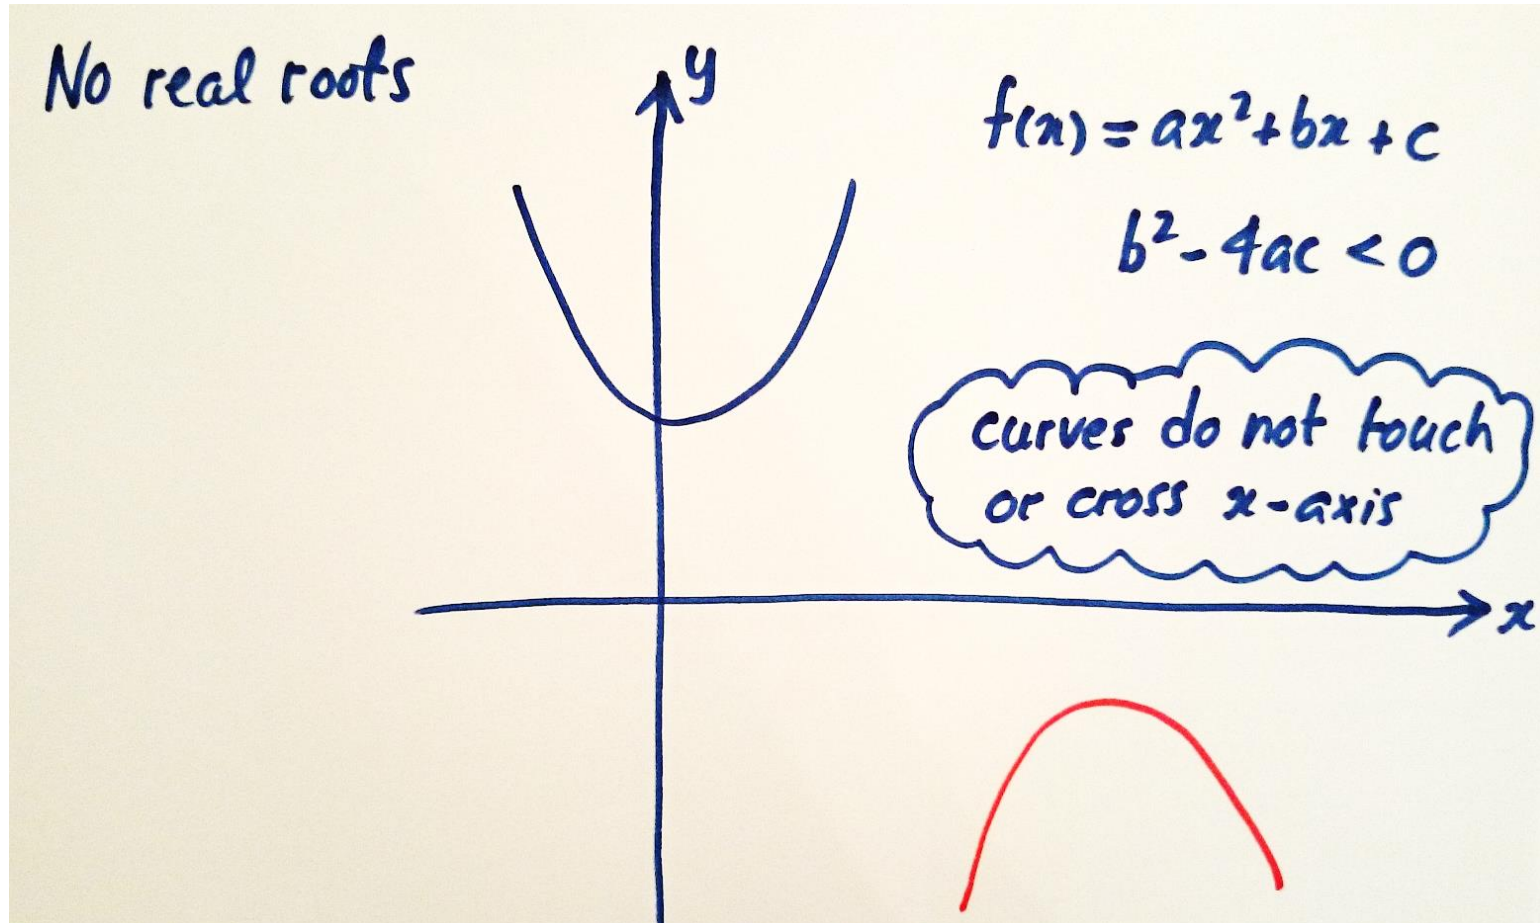 No real roots
y
f(x) = ax²+bx+c
b²-4ac <0
curves do not touch
or cross x-axis
x